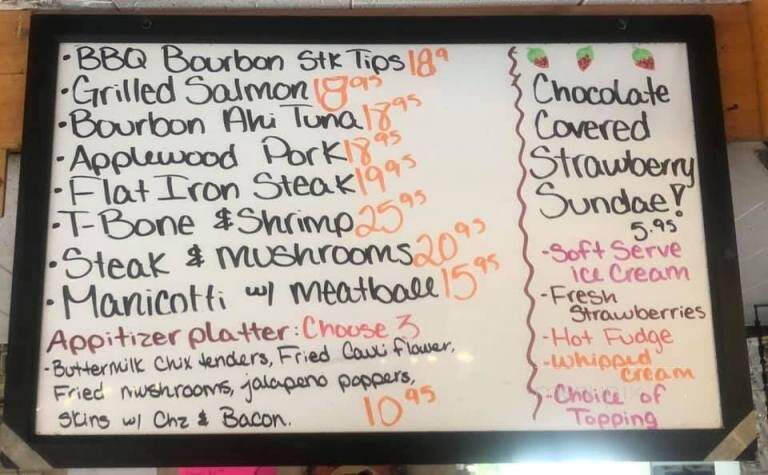 • BBQ Bourbon Stk Tips 18⁹
• Grilled Salmon 18⁹⁵
• Bourbon Ahi Tuna 18⁹⁵
• Applewood Pork 18⁹⁵
• Flat Iron Steak 19⁹⁵
• T-Bone & Shrimp 25⁹⁵
• Steak & mushrooms 20⁹⁵
• Manicotti w/ meatball 15⁹⁵
Appitizer platter: Choose 3
- Buttermilk Chix tenders, Fried Cauiflower,
Fried mushrooms, jalapeno poppers,
Skins w/ Chz & Bacon. 10⁹⁵
Chocolate
Covered
Strawberry
Sundae!
5.95
- Soft Serve
Ice Cream
- Fresh
Strawberries
- Hot Fudge
- Whipped
Cream
- Choice of
Topping